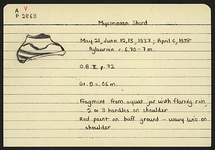 A V
P 2863
Mycenaean Sherd
May 21, June 12, 13, 1937; April 6, 1938
O.B. II p. 72
Gr. D = .06 m.
Fragment from squat jar with flaring rim,
2 or 3 handles on shoulder
Red paint on buff ground - wavy line on
shoulder